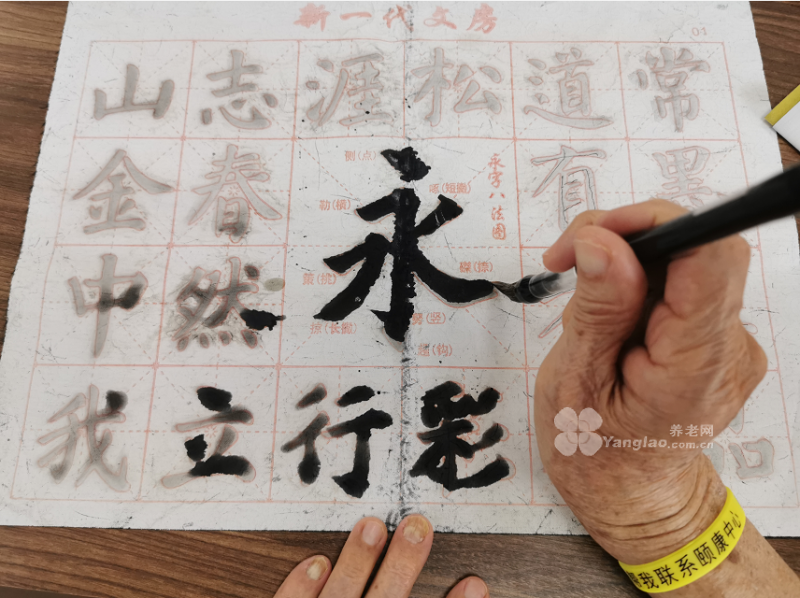 新一代文房
01
山 志 涯 松 道 常
金 春 有 墨
中 然
我 立 行 彩
永
侧(点)
勒(横)
策(挑)
掠(长撇)
啄(短撇)
磔(捺)
努(竖)
趯(钩)
永字八法图
养老网
Yanglao.com.cn
我联系颐康中心